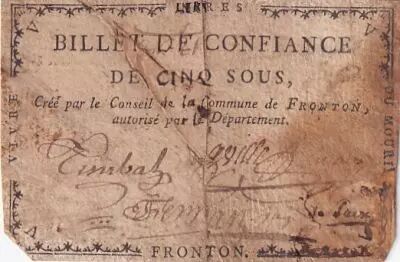 LIBRES
BILLET DE CONFIANCE
DE CINQ SOUS,
Créé par le Conseil de la Commune de FRONTON,
autorisé par le Département.
VIVRE
OU MOURIR
Timbal
FRONTON.